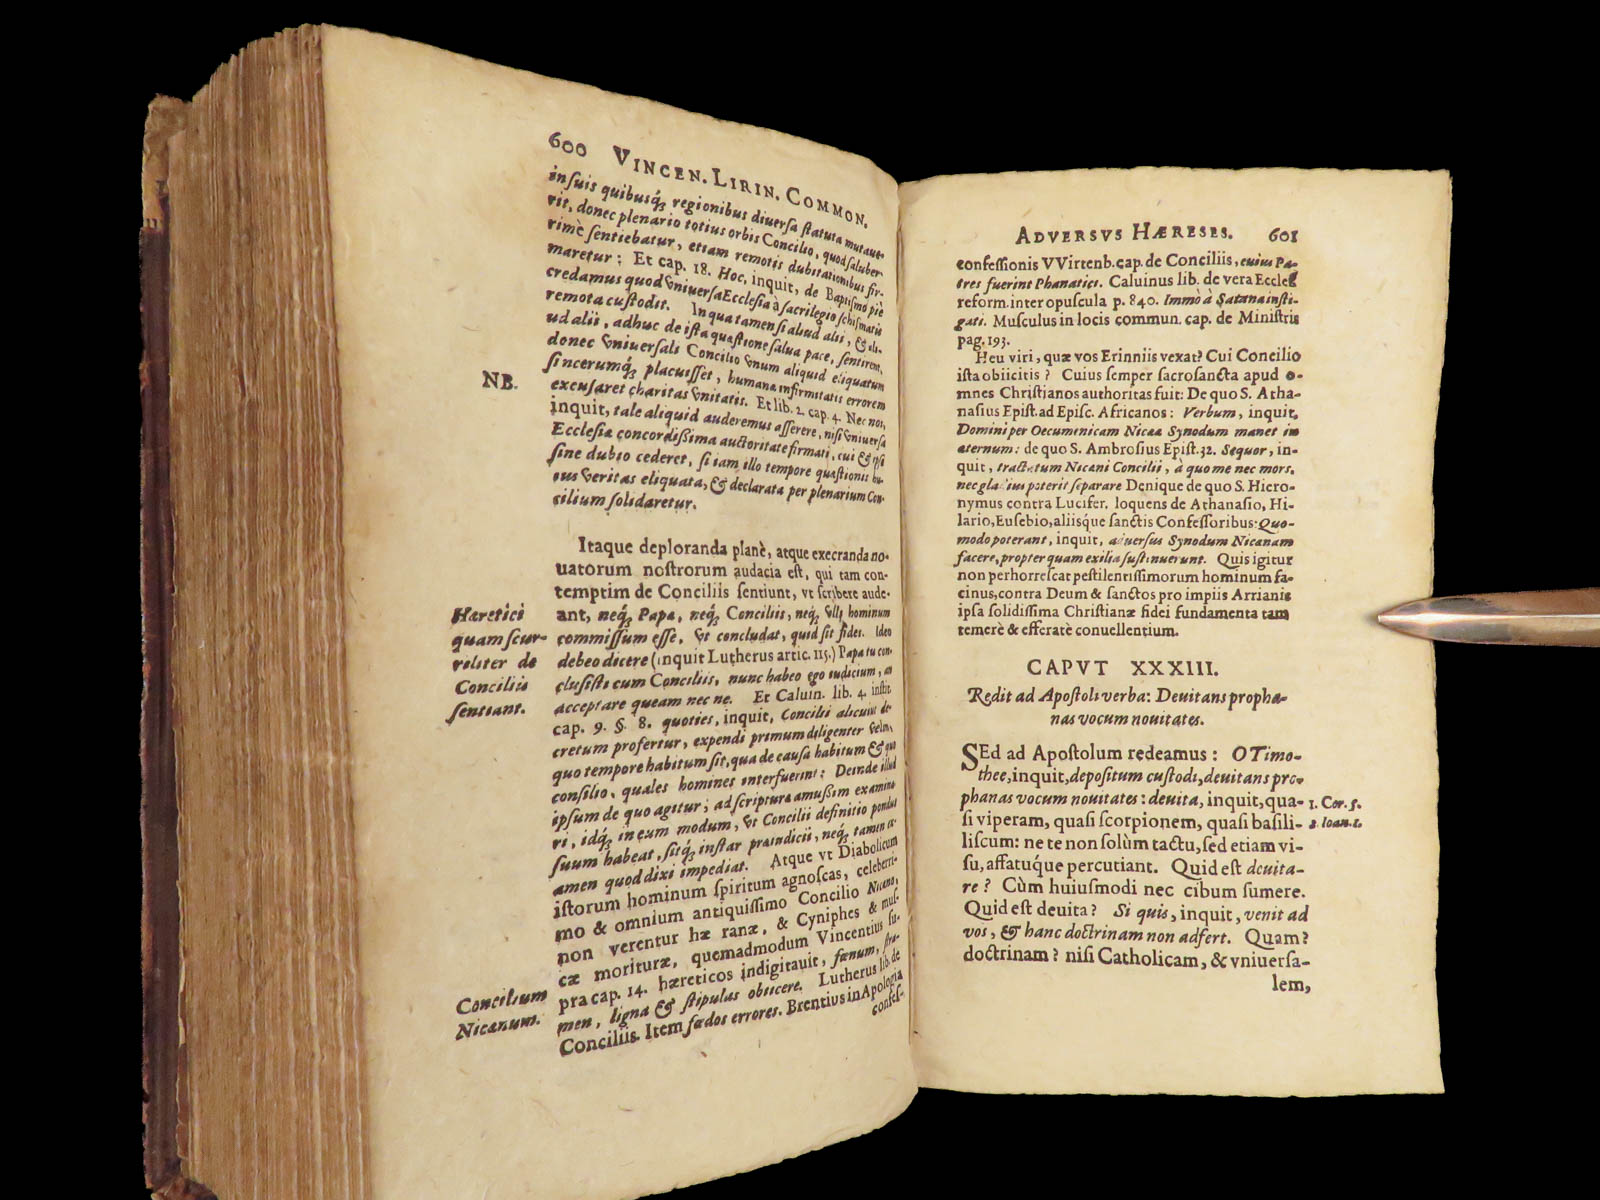 600 VINCEN. LIRIN. COMMON.
in suis quibusq́; regionibus diuersa statuta mutaue-
rit, donec plenario totius orbis Concilio, quod saluber-
rimè sentiebatur, etiam remotis dubitationibus fir-
maretur: Et cap. 18. Hoc, inquit, de Baptismo piè
credamus quod vniuersa Ecclesia à sacrilegio schismatis
remota custodit. In qua tamen si aliud alii, & ali-
ud alii, adhuc de ista quæstione salua pace, sentirent,
donec vniuersali Concilio vnum aliquid eliquatum
sincerumq́; placuisset, humanæ infirmitatis errorem
NB.
excusaret charitas vnitatis. Et lib. 2. cap. 4. Nec nos,
inquit, tale aliquid auderemus asserere, nisi vniuersæ
Ecclesiæ concordißima auctoritate firmati, cui & ipse
sine dubio cederet, si iam illo tempore quæstionis hu-
ius veritas eliquata, & declarata per plenarium Con-
cilium solidaretur.
Itaque deploranda planè, atque execranda no-
uatorum nostrorum audacia est, qui tam con-
temptim de Conciliis sentiunt, vt scribere aude-
ant, neq́; Papæ, neq́; Conciliis, neq́; vlli hominum
commissum esse, vt concludat, quid sit fides. Ideo
debeo dicere (inquit Lutherus artic. 115.) Papa tu con-
clusisti cum Conciliis, nunc habeo ego iudicium, an
acceptare queam nec ne. Et Caluin. lib. 4. instit.
Hæretici
quam scur-
riliter de
Conciliis
sentiant.
cap. 9. §. 8. quoties, inquit, Concilii alicuius de-
cretum profertur, expendi primum diligenter velim,
quo tempore habitum sit, qua de causa habitum & quo
consilio, quales homines interfuerint: Deinde illud
ipsum de quo agitur, ad scripturæ amußim examina-
ri, idq́; in eum modum, vt Concilii definitio pondus
suum habeat, sitq́; instar præiudicii, neq́; tamen ex-
amen quod dixi impediat. Atque vt Diabolicum
istorum hominum spiritum agnoscas, celeberri-
mo & omnium antiquissimo Concilio Nicæno,
non verentur hæ ranæ, & Cyniphes & mus-
cæ morituræ, quemadmodum Vincentius su-
pra cap. 14. hæreticos indigitauit, fœnum, stra-
men, ligna & stipulas obiicere. Lutherus lib. de
Conciliis. Item fœdos errores. Brentius in Apologia
Concilium
Nicænum.
confes-
ADVERSVS HÆRESES. 601
confessionis VVirtenb. cap. de Conciliis, cuius Pa-
tres fuerint Phanatici. Caluinus lib. de vera Eccles.
reform. inter opuscula p. 840. Immò à Satana insti-
gati. Musculus in locis commun. cap. de Ministris
pag. 193.
Heu viri, quæ vos Erinniis vexat? Cui Concilio
ista obiicitis? Cuius semper sacrosancta apud o-
mnes Christianos authoritas fuit: De quo S. Atha-
nasius Epist. ad Episc. Africanos: Verbum, inquit,
Domini per Oecumenicam Nicææ Synodum manet in
æternum: de quo S. Ambrosius Epist. 32. Sequor, in-
quit, tractatum Nicæni Concilii, à quo me nec mors,
nec gladius poterit separare Denique de quo S. Hiero-
nymus contra Lucifer. loquens de Athanasio, Hi-
lario, Eusebio, aliisque sanctis Confessoribus: Quo-
modo poterant, inquit, aduersus Synodum Nicænam
facere, propter quam exilia sustinuerunt. Quis igitur
non perhorrescat pestilentissimorum hominum fa-
cinus, contra Deum & sanctos pro impiis Arrianis
ipsa solidissima Christianæ fidei fundamenta tam
temerè & efferatè conuellentium.
CAPVT XXXIII.
Redit ad Apostoli verba: Deuitans propha-
nas vocum nouitates.
SEd ad Apostolum redeamus: O Timo-
thee, inquit, depositum custodi, deuitans pro-
phanas vocum nouitates: deuita, inquit, qua-
1. Cor. 5.
si viperam, quasi scorpionem, quasi basili-
2. Ioan. 1.
liscum: ne te non solùm tactu, sed etiam vi-
su, affatuque percutiant. Quid est deuita-
re? Cùm huiusmodi nec cibum sumere.
Quid est deuita? Si quis, inquit, venit ad
vos, & hanc doctrinam non adfert. Quam?
doctrinam? nisi Catholicam, & vniuersa-
lem,